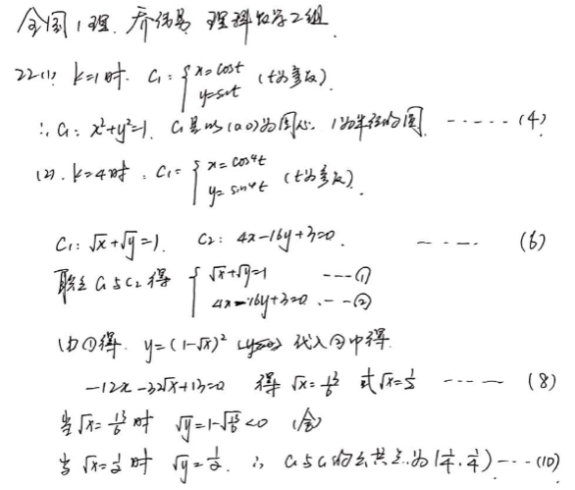 全国1理. 乔伟易 理科数学2组.
22(1) k=1时. C₁: { x=cost y=sint (t为参数).
∴ C₁: x²+y²=1. C₁是以(0,0)为圆心. 1为半径的圆. ······(4)
(2). k=4时, C₁= { x=cos⁴t y=sin⁴t (t为参数).
C₁: √x+√y=1. C₂: 4x-16y+3=0. ---- (6)
联立C₁与C₂得 { √x+√y=1 ---① 4x-16y+3=0 .--②
由①得. y=(1-√x)² 代入②中得.
-12x-32√x+13=0 得 √x=13/6 或√x=1/2 ---- (8)
当√x=13/6时 √y=1-√13/6<0 (舍)
当√x=1/2时 √y=1/2. ∴ C₁与C₂的公共点为(1/4,1/4)---(10)